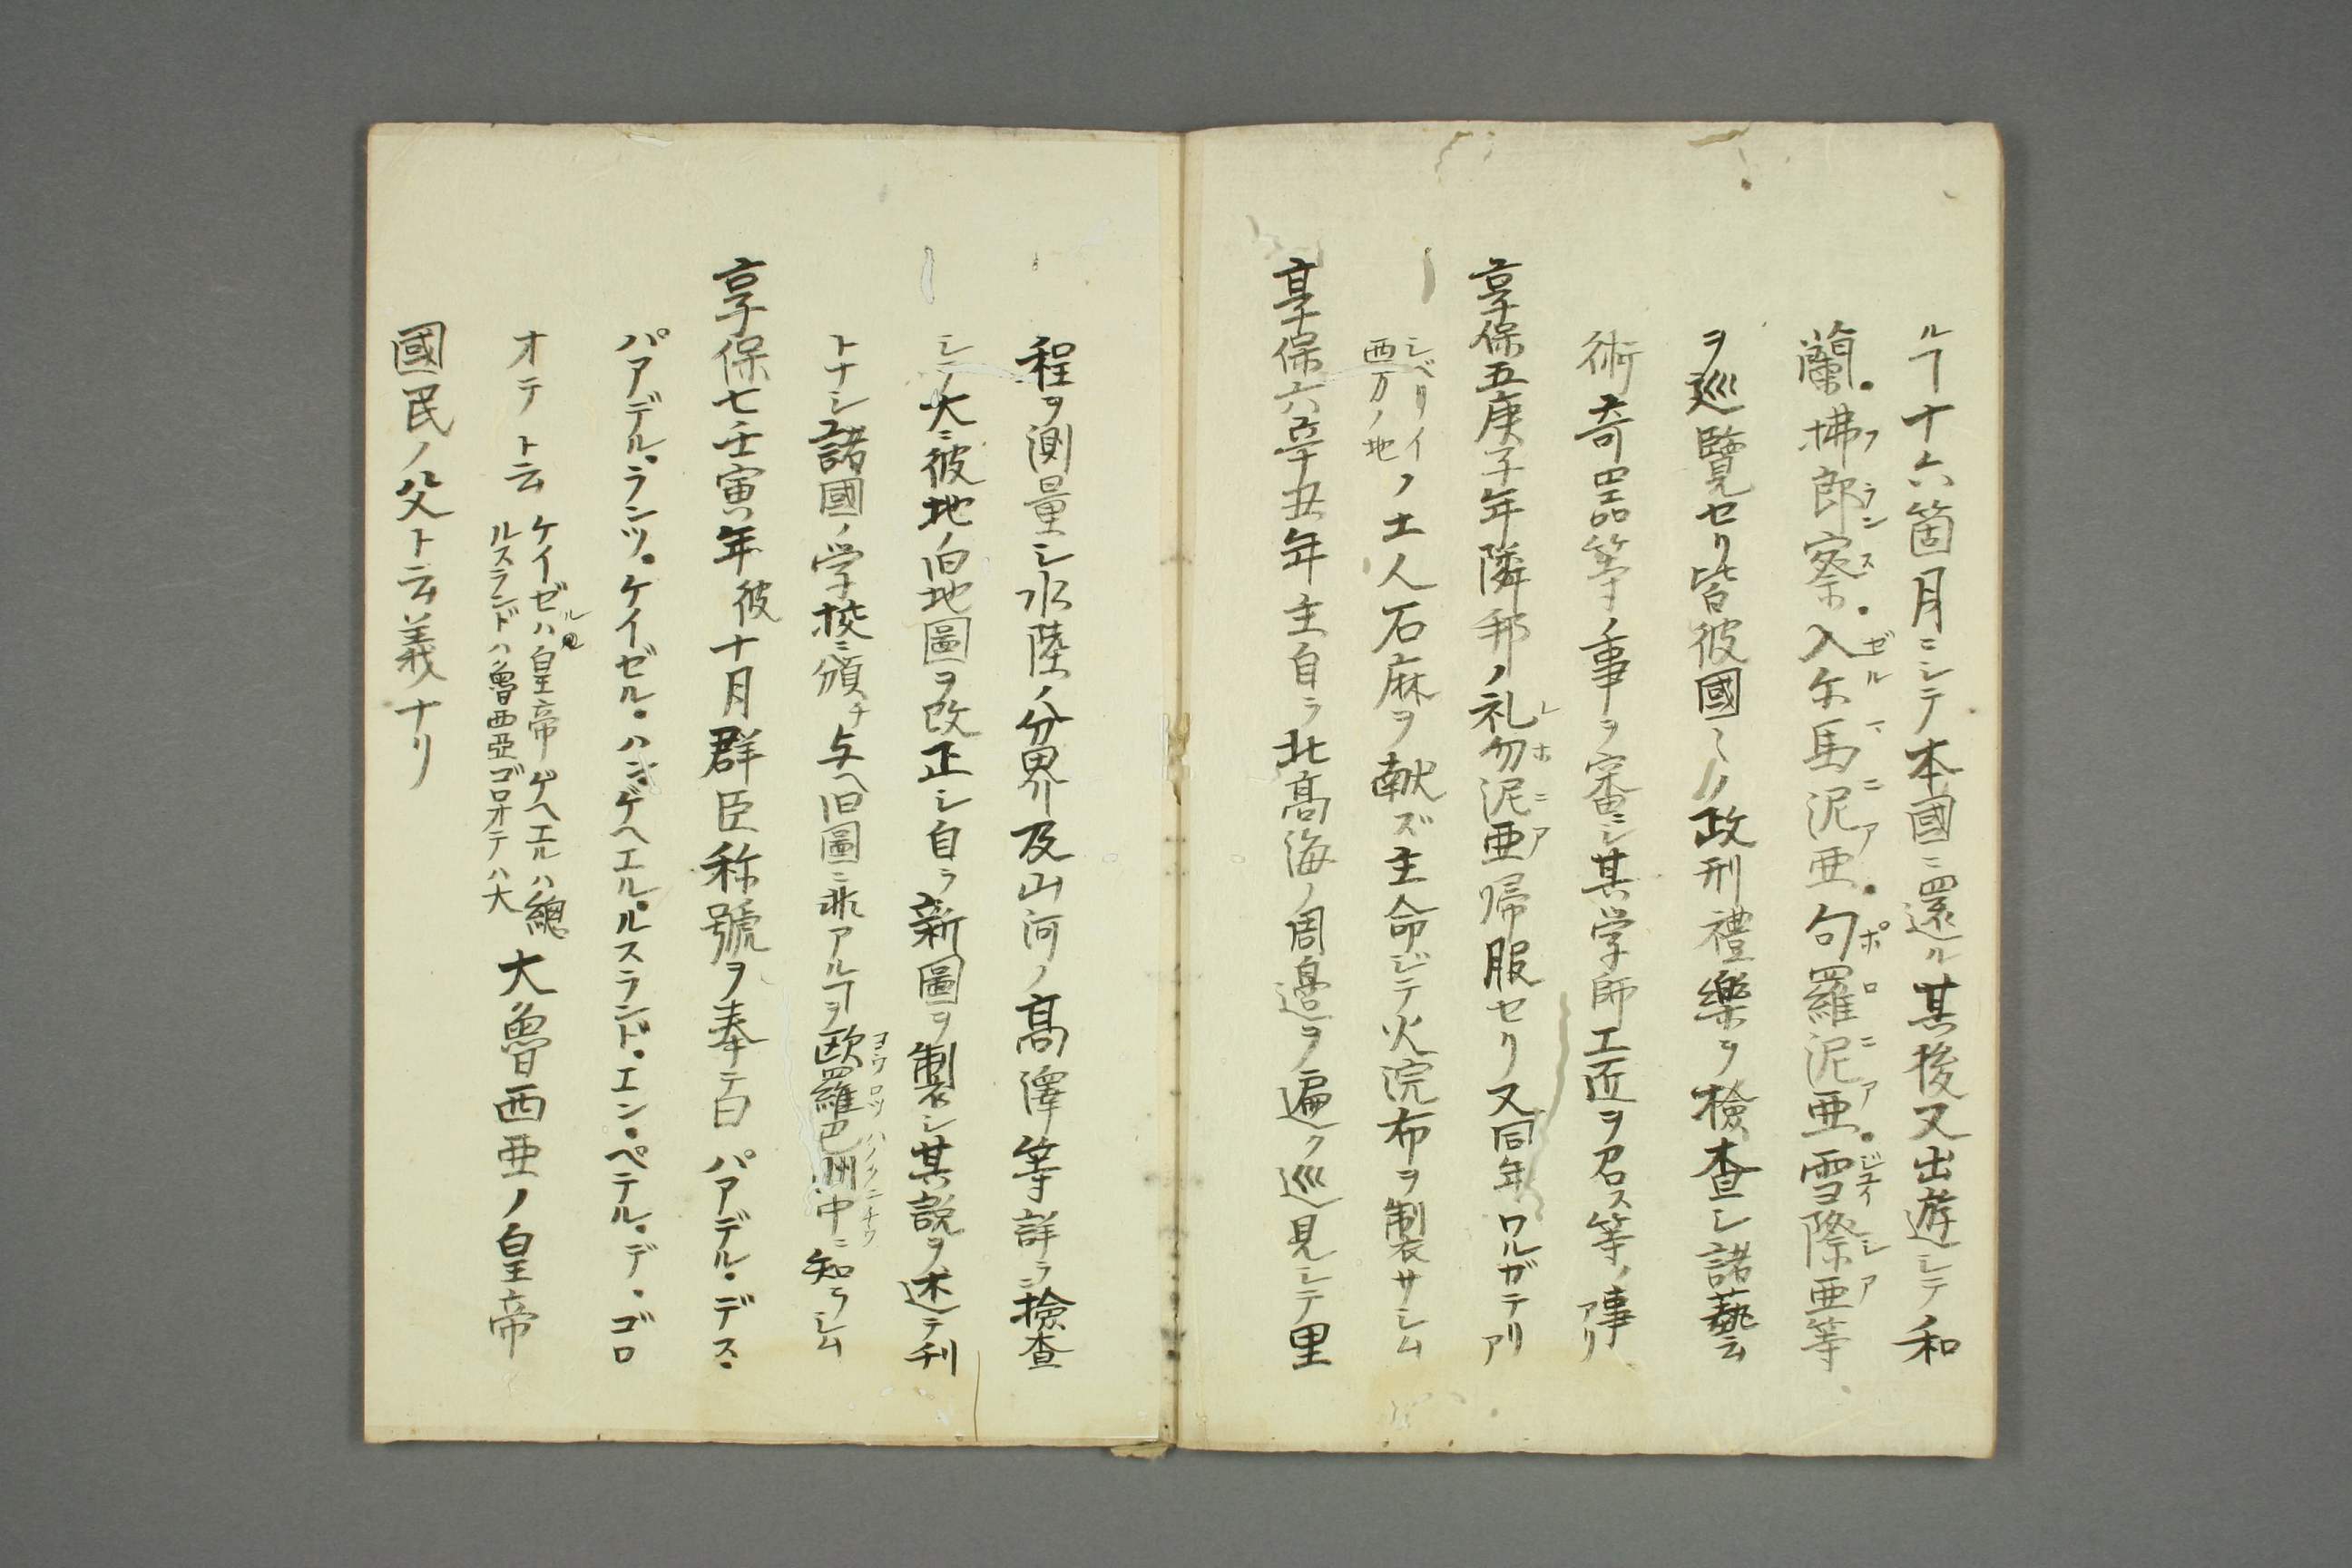 ルヿ十六箇月ニシテ本國ニ還ル其後又出遊シテ和
蘭・拂郎察・入尓馬泥亜・勾羅泥亜・雪際亜等
フランス・ゼルマニア・ポロニア・ジュイシア
ヲ巡覽セリ皆彼國〻ノ政刑禮樂ヲ檢査シ諸藝云
術奇噐等ノ事ヲ審ニシ其学師工匠ヲ召ス等ノ事アリ
享保五庚子年隣邦ノ礼勿泥亜帰服セリ又同年ワルガテリア
レホニア
シベリイ
西方ノ地
ノ土人石麻ヲ献ズ主命ジテ火浣布ヲ製サシム
享保六辛丑年主自ラ北高海ノ周邉ヲ遍ク巡見シテ里
程ヲ測量シ水陸ノ分界及山河ノ高澤等詳ラニ撿査
シ大ニ彼地ノ旧地圖ヲ改正シ自ラ新圖ヲ製シ其説ヲ述テ刊
トナシ諸國ノ学校ニ頒チ与ヘ旧圖ニ乖アルヿヲ欧羅巴洲中ニ知ラシム
ヨウロツハノクニチウ
享保七壬寅年彼十月群臣称號ヲ奉テ曰パアデル・デス・
パアデル・ランツ・ケイゼル・ハン・ゲヘエル・ルスランド・エン・ペテル・デ・ゴロ
オテト云
ケイゼルハ皇帝ゲヘエルハ總
ルスランドハ魯西亞ゴロオテハ大
大魯西亜ノ皇帝
國民ノ父ト云義ナリ